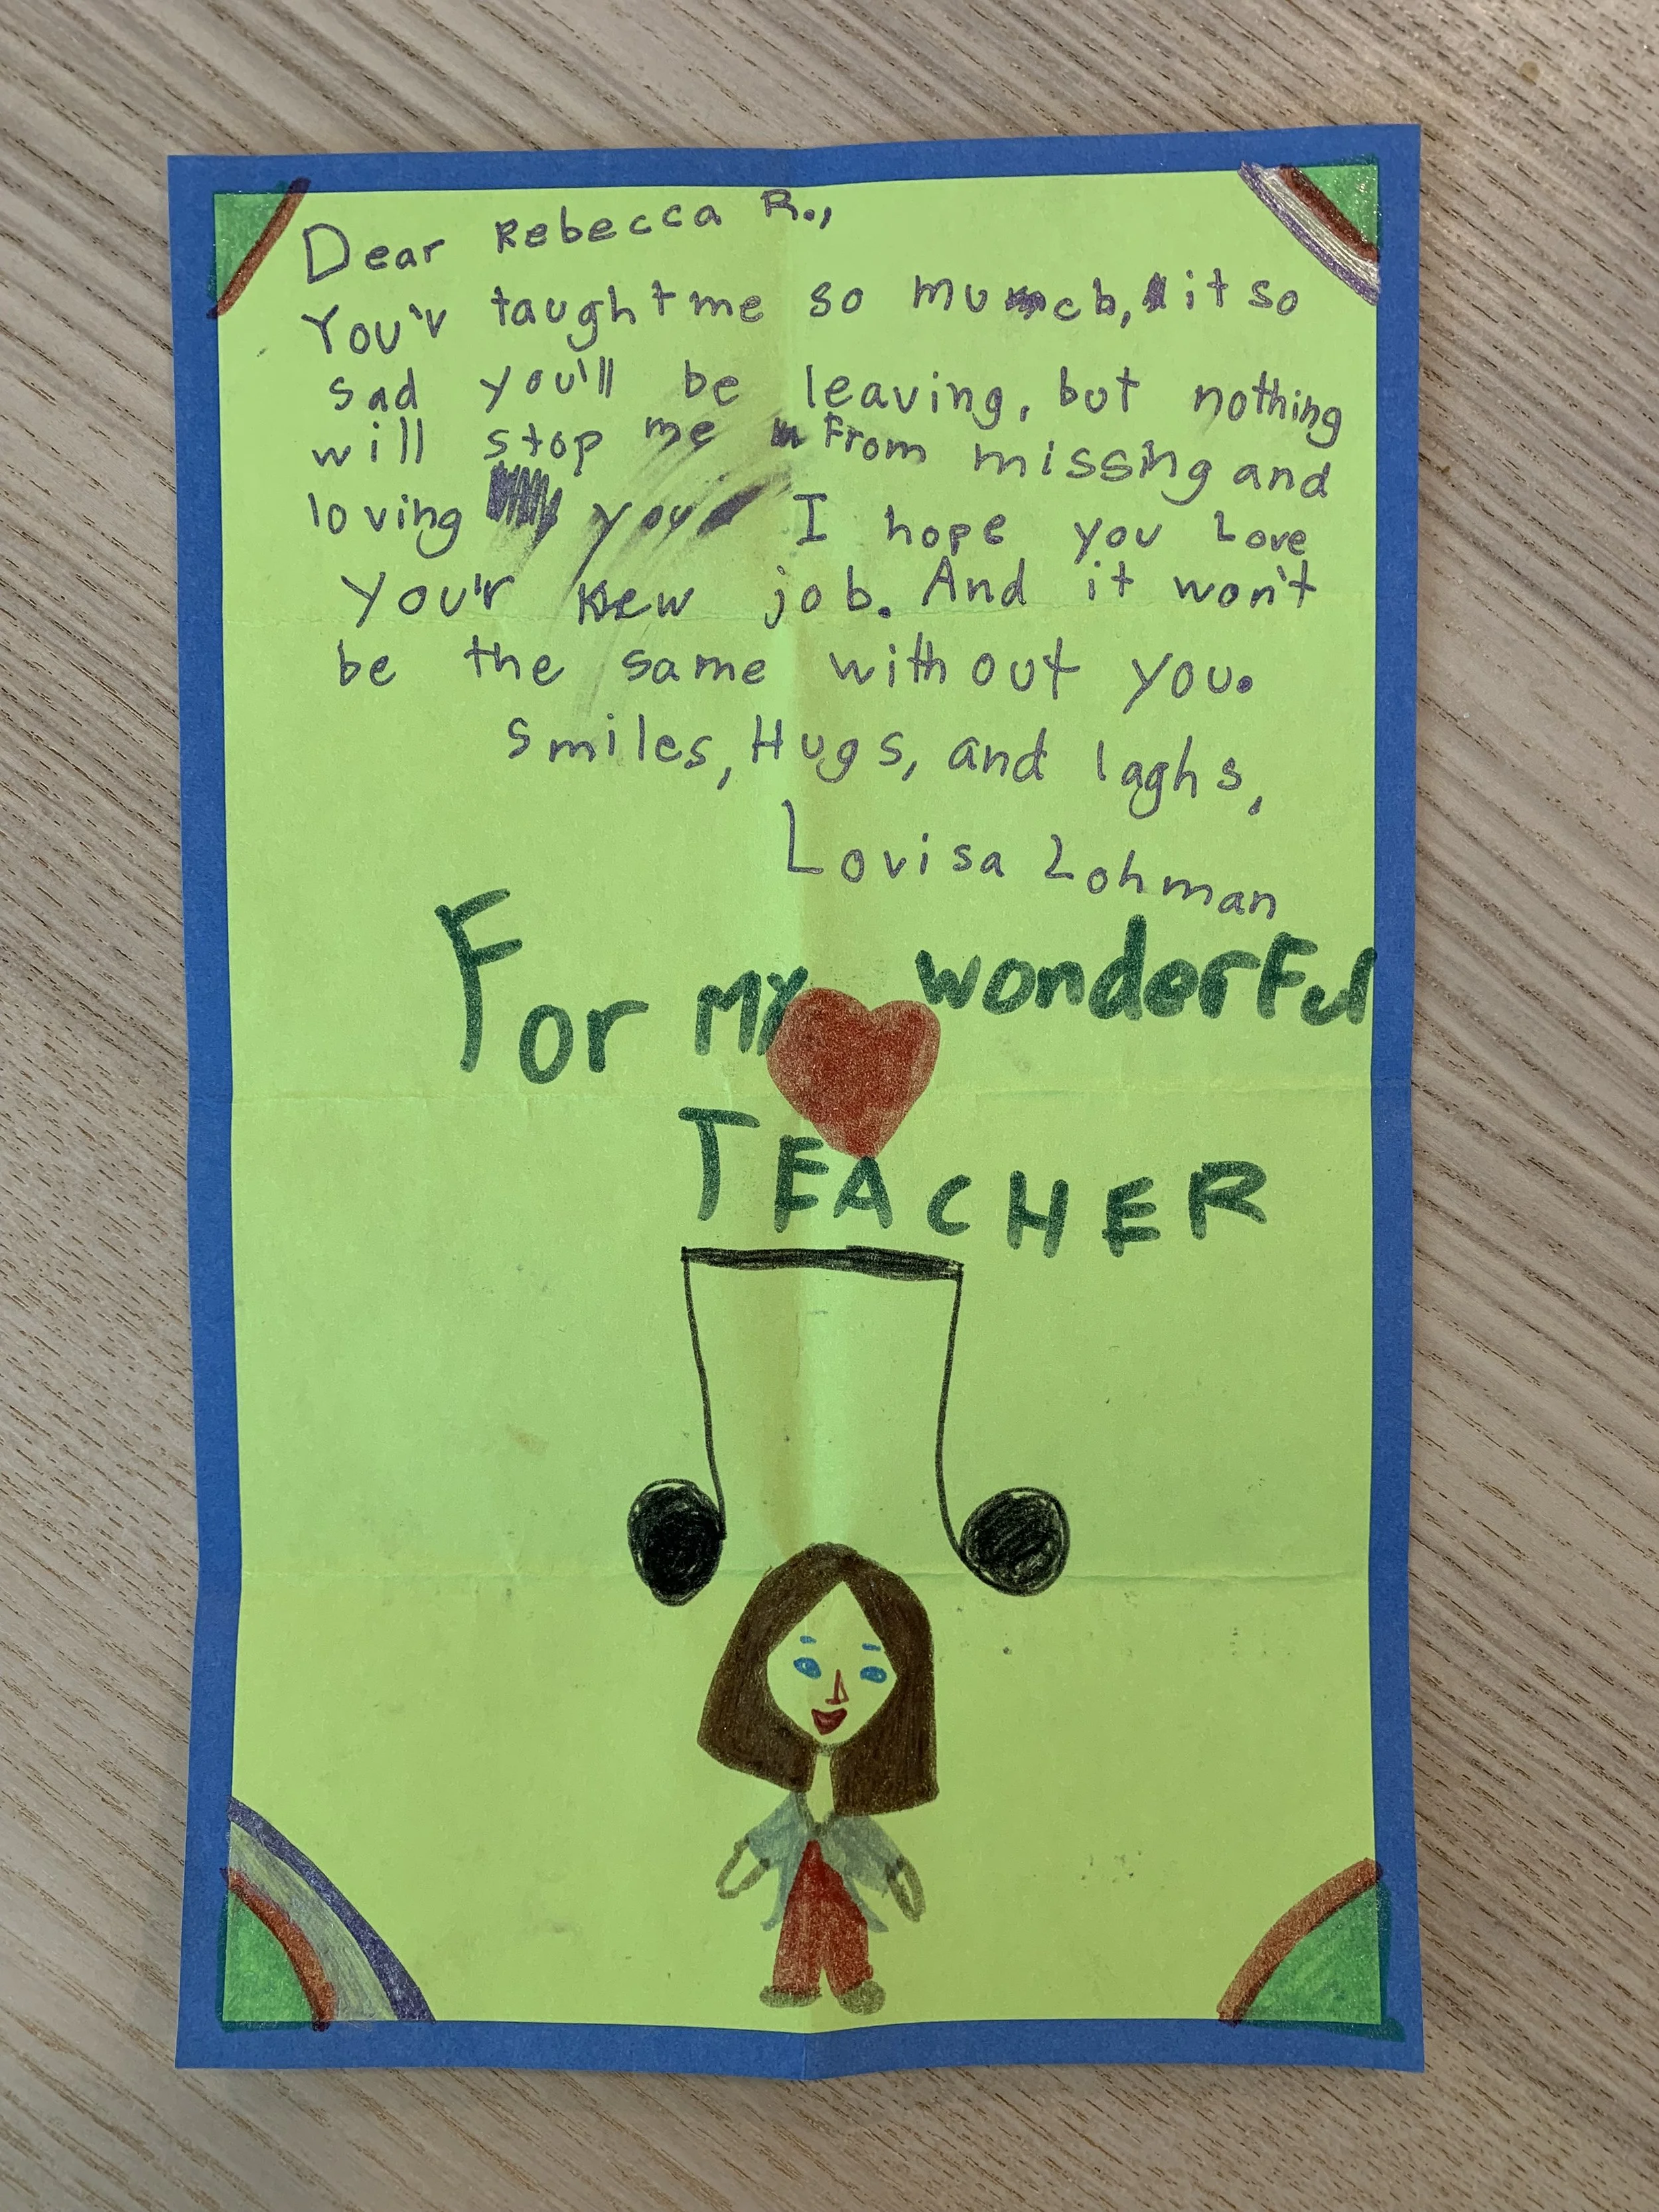 Dear Rebecca R.,
You'v taught me so much, it so
sad you'll be leaving, but nothing
will stop me From missing and
loving you I hope you Love
you'r new job. And it won't
be the same with out you.
Smiles, Hugs, and laghs,
Lovisa Lohman
For my wonderFul
TEACHER